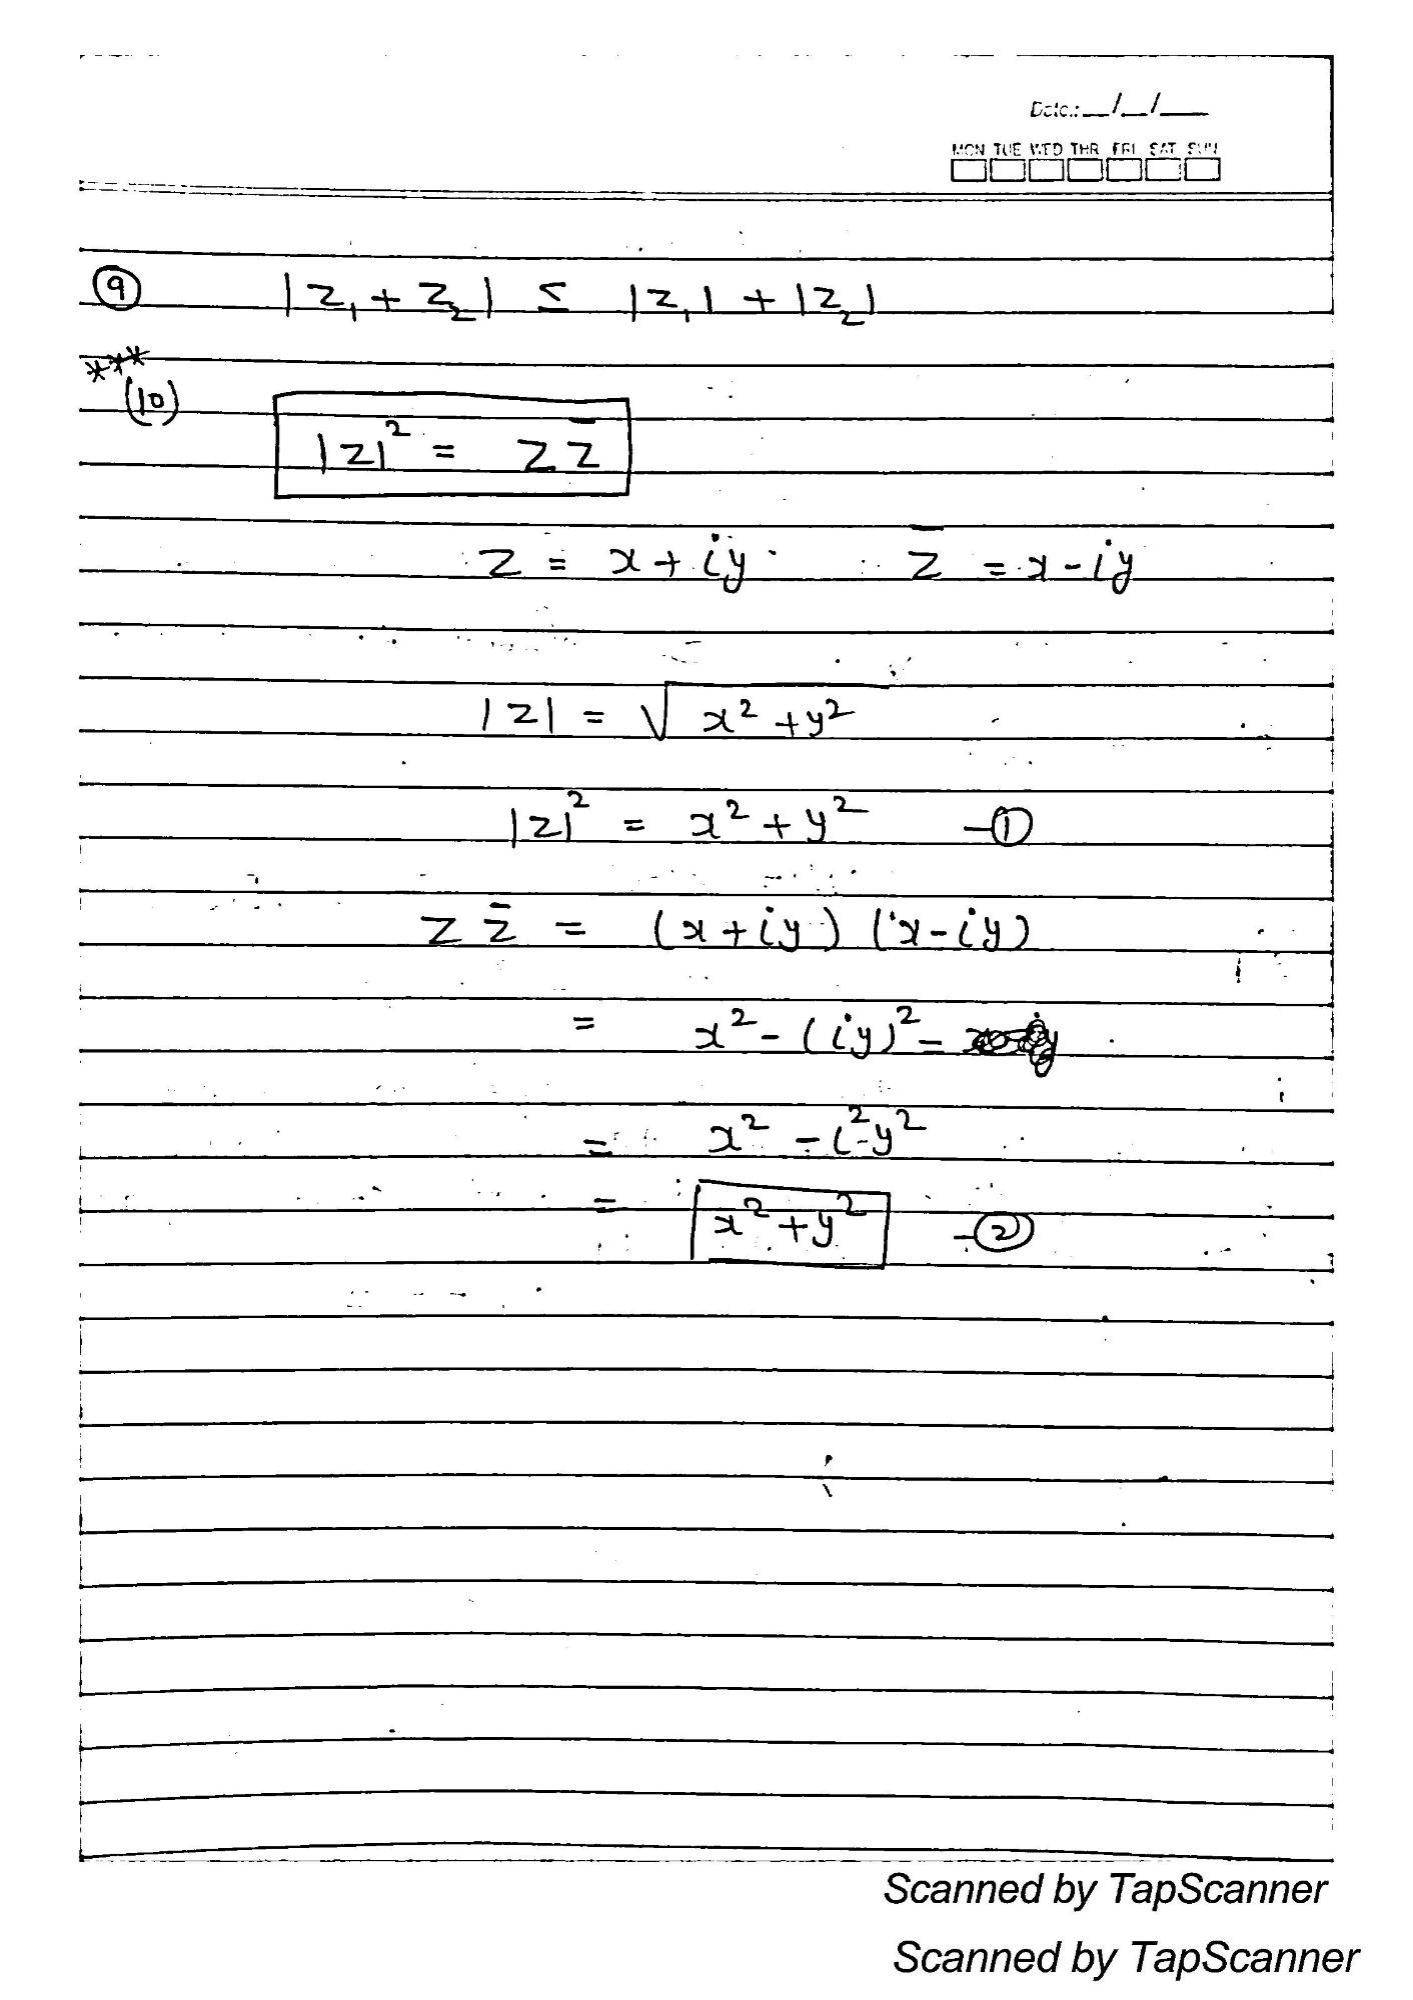 Date.: __/__/____
MON TUE WED THR FRI SAT SUN
(9) |z₁ + z₂| ≤ |z₁| + |z₂|
***
(10)
|z|² = z z̄
z = x + iy z̄ = x - iy
|z| = √x² + y²
|z|² = x² + y² -(1)
z z̄ = (x + iy) (x - iy)
= x² - (iy)² -
= x² - i² y²
= x² + y² -(2)
Scanned by TapScanner
Scanned by TapScanner